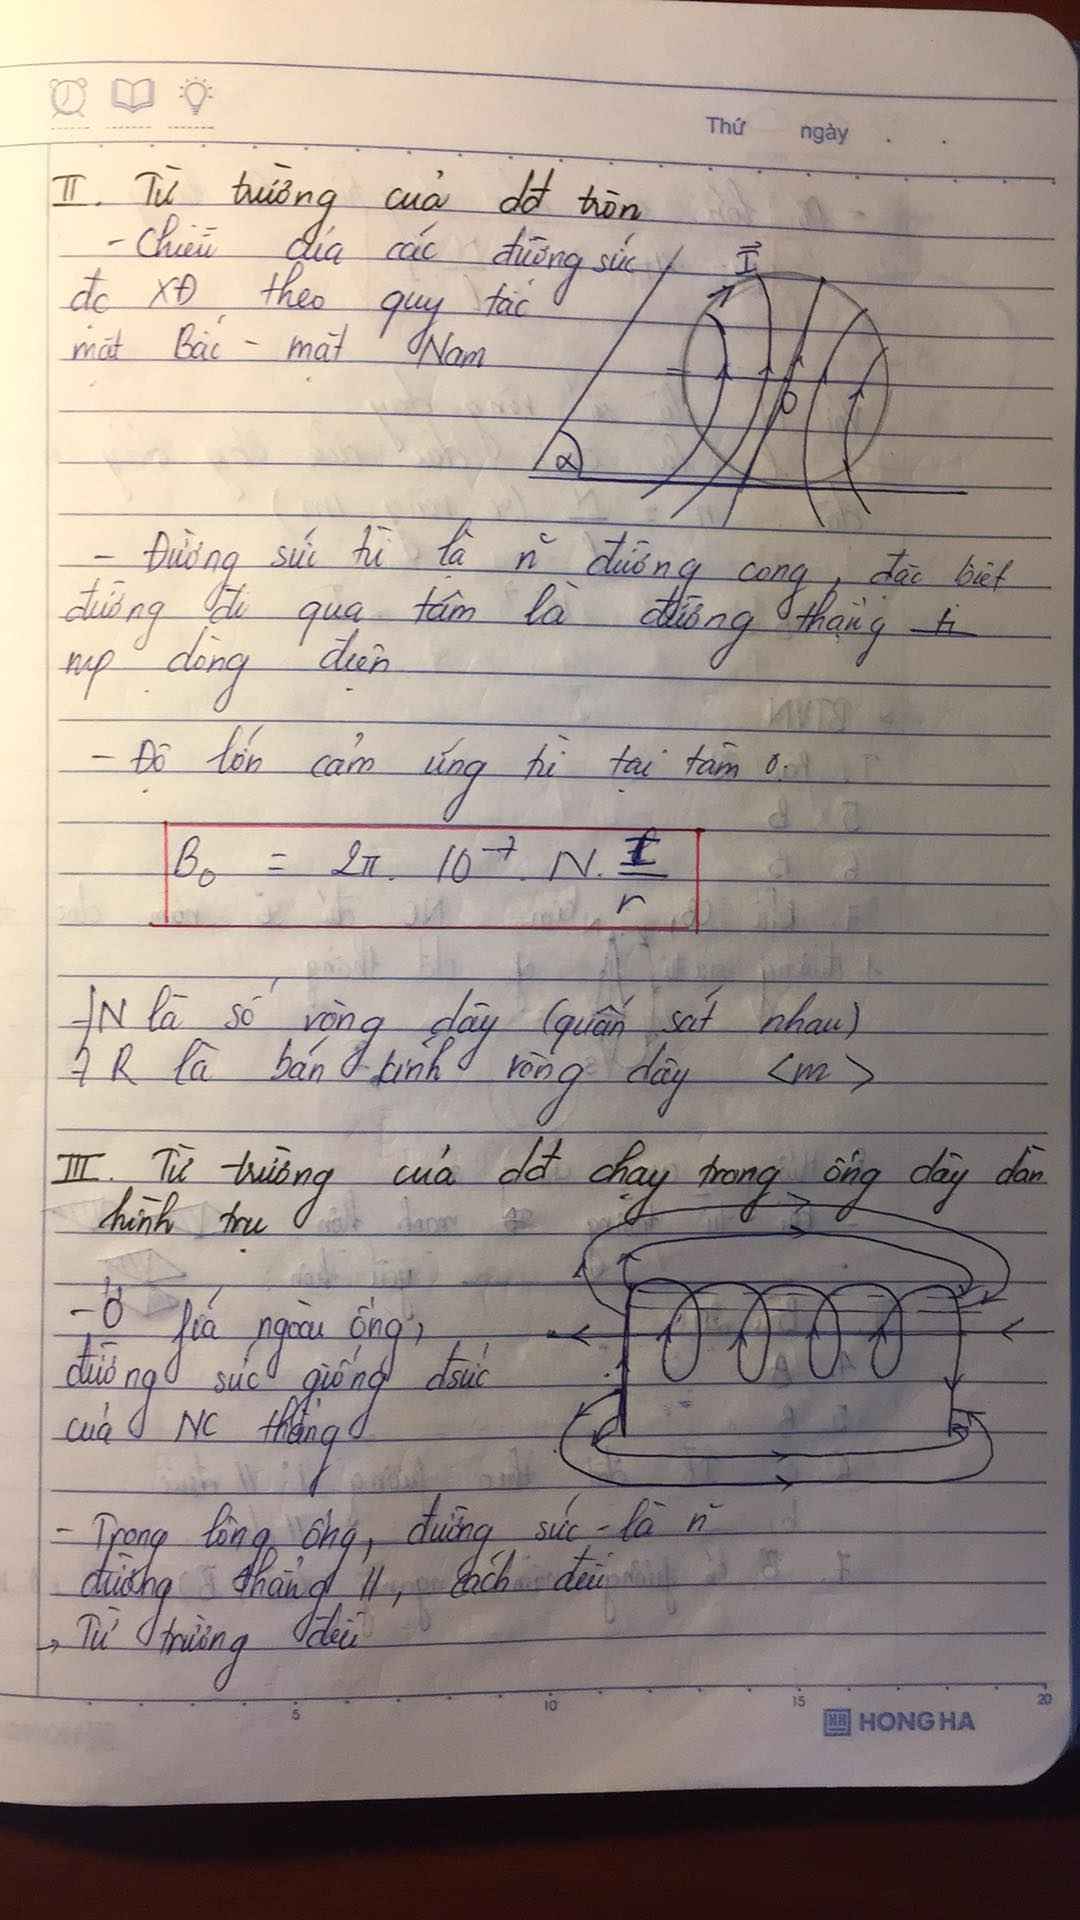 Thứ ngày . .
II. Từ trường của dđ tròn
- Chiều của các đường sức
đc XĐ theo quy tắc
mặt Bắc - mặt Nam
I
O
α
- Đường sức từ là n~ đường cong, đặc biệt
đường đi qua tâm là đường thẳng
mp dòng điện
- Độ lớn cảm ứng từ tại tâm O.
B₀ = 2π. 10⁻⁷. N. I/r
N là số vòng dây (quấn sát nhau)
R là bán kính vòng dây <m>
III. Từ trường của dđ chạy trong ống dây dẫn
hình trụ
- Ở fía ngoài ống,
đường sức giống đsức
của NC thẳng
- Trong lòng ống, đường sức là n~
đường thẳng //, cách đều
→ Từ trường đều
5 10 15 20
HH HONG HA